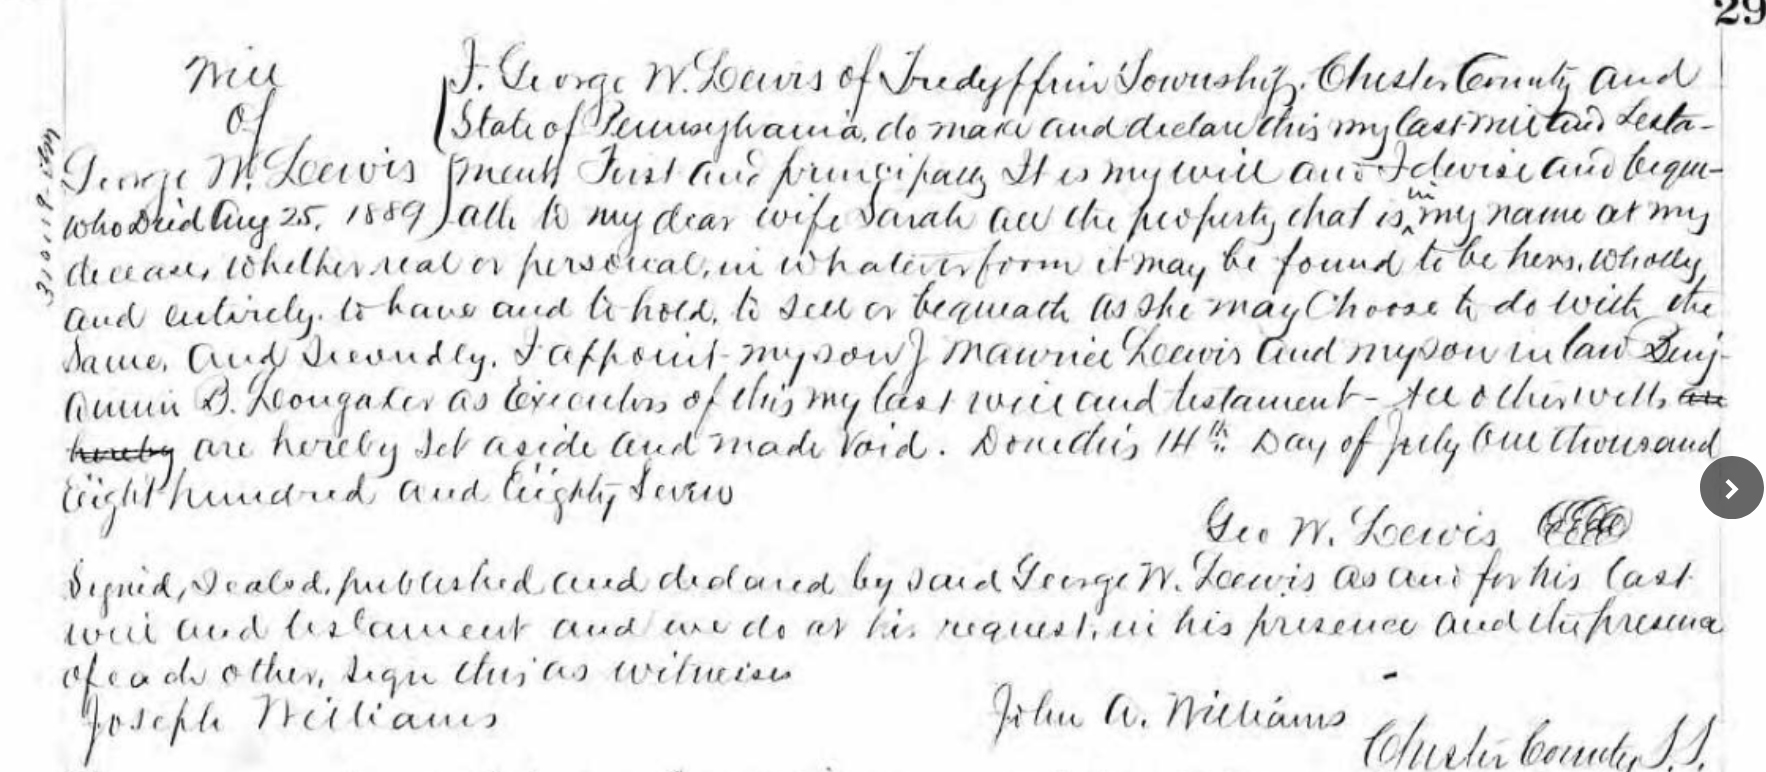 29
Will
of
George W. Lewis
who Died Aug 25, 1889
I. George W. Lewis of Tredyffrin Township. Chester County and
State of Pennsylvania, do make and declare this my last will and Testa-
ment First and principally It is my will and I devise and beque-
ath to my dear wife Sarah all the property that is in my name at my
decease, whether real or personal, in whatever form it may be found to be hers, wholly
and entirely. to have and to hold, to sell or bequeath as she may Choose to do with the
Same. And Secondly. I appoint my son J Maurice Lewis and my son in law Benj-
amin B. Longaker as Executors of this my last will and testament - All other wills are
hereby are hereby set aside and made void. Done this 14th Day of July One thousand
Eight hundred and Eighty Seven
Geo W. Lewis
Signed, Sealed, published and declared by said George W. Lewis as and for his last
will and testament and we do at his request, in his presence and the presence
of each other, sign this as witnesses
Joseph Williams John A. Williams
Chester County S.S.